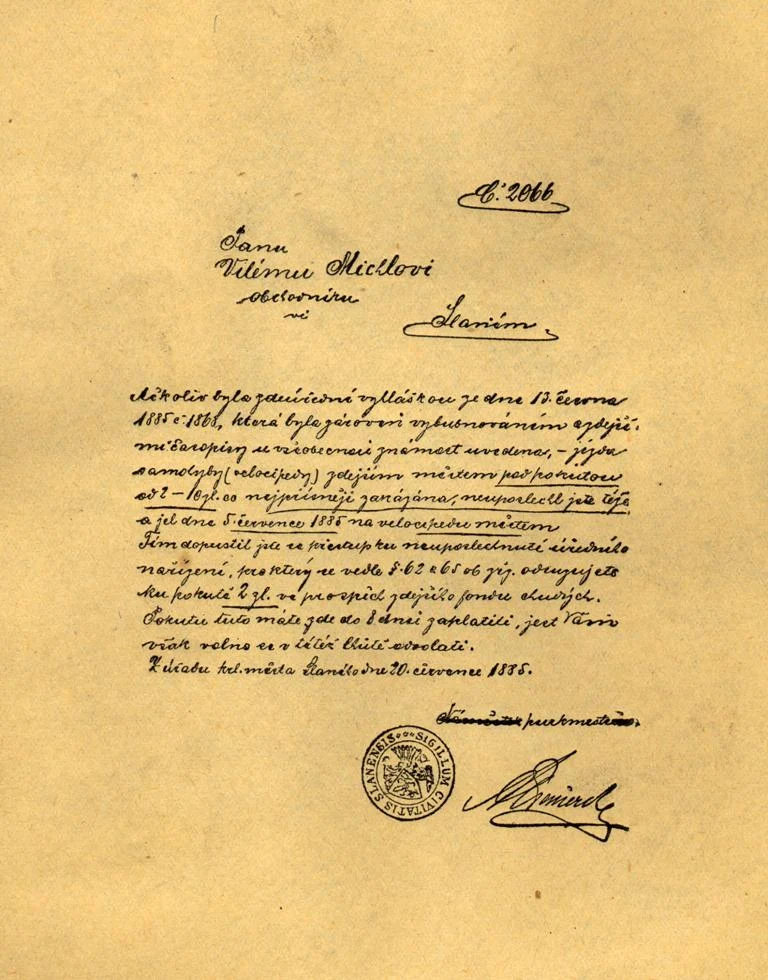 Č. 2066
Panu
Vilému Michlovi
obchodníku
ve
Slaném
Ačkoliv byla zdeúřední vyhláškou ze dne 13. června
1885 č. 1868, která byla zároveň vybubnováním a zdejší-
mi časopisy u všeobecnou známost uvedena, – jízda
samohyby (velocipedy) zdejším městem pod pokutou
od 2 – 10 zl. co nejpřísněji zakázána, neuposlechl jste téže
a jel dne 5. července 1885 na velocipedu městem
Tím dopustil jste se přestupku neuposlechnutí úředního
nařízení, pro který se vedle §. 62 a 65 ob. zříz. odsuzujete
ku pokutě 2 zl. ve prospěch zdejšího fondu chudých.
Pokutu tuto máte zde do 8 dnů zaplatiti, jest Vám
však volno se v též lhůtě odvolati.
Z úřadu král. města Slaného dne 20. července 1885.
purkmistr
SIGILLUM CIVITATIS SLANENSIS